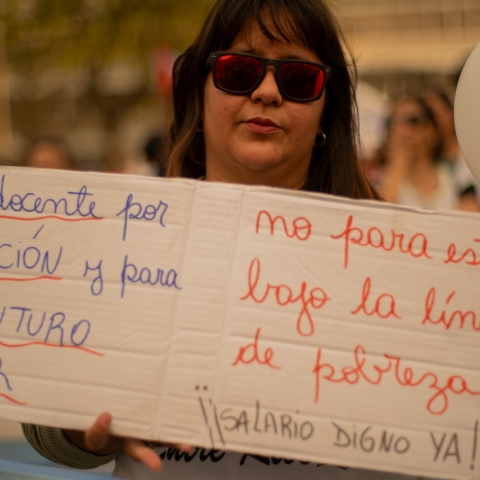 docente por
CIÓN y para
UTURO
R
no para es
bajo la lín
de pobreza
¡¡SALARIO DIGNO YA!